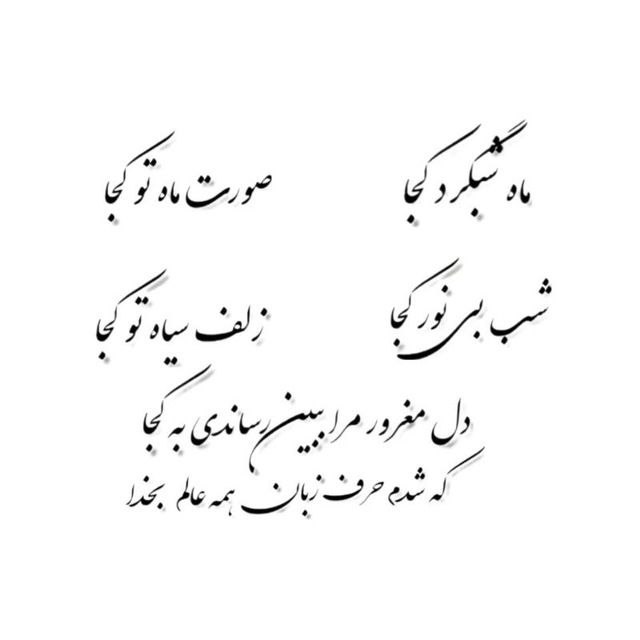 ماه شبگرد کجا صورت ماه تو کجا
شب بی نور کجا زلف سیاه تو کجا
دل مغرور مرا ببین رساندی به کجا
که شدم حرف زبان همه عالم بخدا